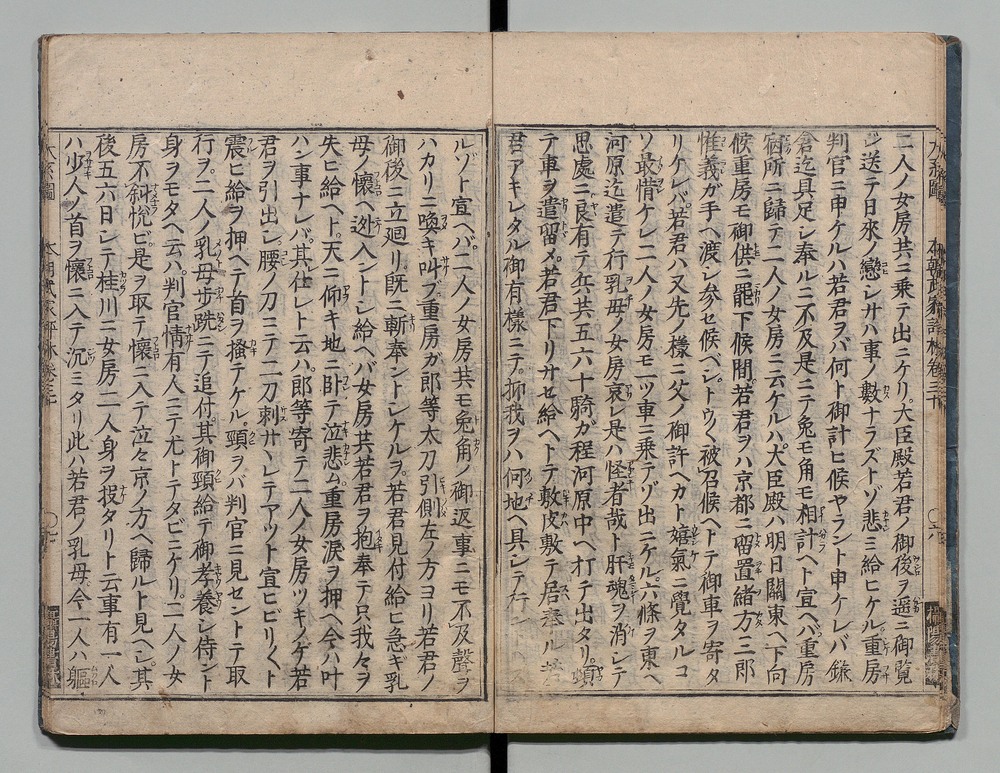 二人ノ女房共ニ乗テ出ニケリ大臣殿若君ノ御後ヲ遥ニ御覧
ジ送テ日來ノ戀シサハ事ノ數ナラズトゾ悲ミ給ヒケル重房
判官ニ申ケルハ若君ヲバ何ト御計ヒ候ヤラント申ケレバ鎌
倉迄具足シ奉ルニ不及是ニテ兎モ角モ相計ヘト宣ヘバ重房
宿所ニ歸テ二人ノ女房ニ云ケルハ大臣殿ハ明日關東ヘ下向
候重房モ御供ニ罷下候間若君ヲハ京都ニ留置緒方三郎
惟義ガ手ヘ渡シ参セ候ベシトウ〱被召候ヘトテ御車ヲ寄タ
リケレバ若君ハ又先ノ樣ニ父ノ御許ヘカト嬉氣ニ覺タルコ
ソ最惜ケレ二人ノ女房モ一ツ車ニ乗テゾ出ニケル六條ヲ東ヘ
河原迄遣テ行乳母ノ女房哀レ是ハ怪者哉ト肝魂ヲ消シテ
思處ニ良有テ兵共五六十騎ガ程河原中ヘ打テ出タリ頓
テ車ヲ遣留メ若君下リサセ給ヘトテ敷皮敷テ居奉ル若
君アキレタル御有樣ニテ抑我ヲハ何地ヘ具シテ行
ルゾト宣ヘバ二人ノ女房共モ兎角ノ御返事ニモ不及聲ヲ
ハカリニ喚キ叫ブ重房ガ郎等太刀引側メ左ノ方ヨリ若君ノ
御後ニ立廻リ既ニ斬奉ントシケルヲ若君見付給ヒ急ギ乳
母ノ懷ヘ迯入ントシ給ヘバ女房共若君ヲ抱奉テ只我々ヲ
失ヒ給ヘト天ニ仰キ地ニ臥テ泣悲ム重房涙ヲ押ヘ今ハ叶
ハシ事ナレバ其仕レト云ハ郎等寄テ二人ノ女房ツキノケ若
君ヲ引出シ腰ノ刀ニテ二刀刺サヽレテアツト宣ヒビリ〱ト
震ヒ給ヲ押ヘテ首ヲ掻テケル頸ヲバ判官ニ見セントテ取
行ヲ二人ノ乳母歩跣ニテ追付其御頸給テ御孝養シ侍ント
身ヲモタヘ云ハ判官情有人ニテ尤トテタビニケリ二人ノ女
房不斜悦ビ是ヲ取テ懷ニ入テ泣々京ノ方ヘ歸ルト見ヘシ其
後五六日シテ桂川ニ女房二人身ヲ投タリト云事有一人
ハ少人ノ首ヲ懷ニ入テ沉ミタリ此ハ若君ノ乳母今一人ハ軀